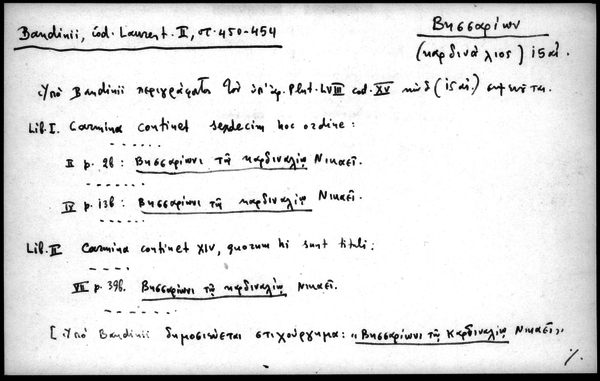 Bandinii, Cod. Laurent. II, στ. 450-454
Βησσαρίων
(καρδινάλιος) ις αἰ.
Ὑπὸ Bandinii περιγράφεται τοῦ ὑπ' ἀρ. Plut. LVIII cod. XV (ις αἰ.)
Lib. I. Carmina continet sexdecim hoc ordine:
II p. 2b: Βησσαρίωνι τῷ καρδιναλίῳ Νικαεῖ.
IV p. 13b: Βησσαρίωνι τῷ καρδιναλίῳ Νικαεῖ.
Lib. II Carmina continet XIV, quorum hi sunt tituli:
VII p. 39b. Βησσαρίωνι τῷ καρδιναλίῳ Νικαεῖ.
[Ὑπὸ Bandinii δημοσιεύεται στιχούργημα: "Βησσαρίωνι τῷ Καρδιναλίῳ Νικαεῖ"
%